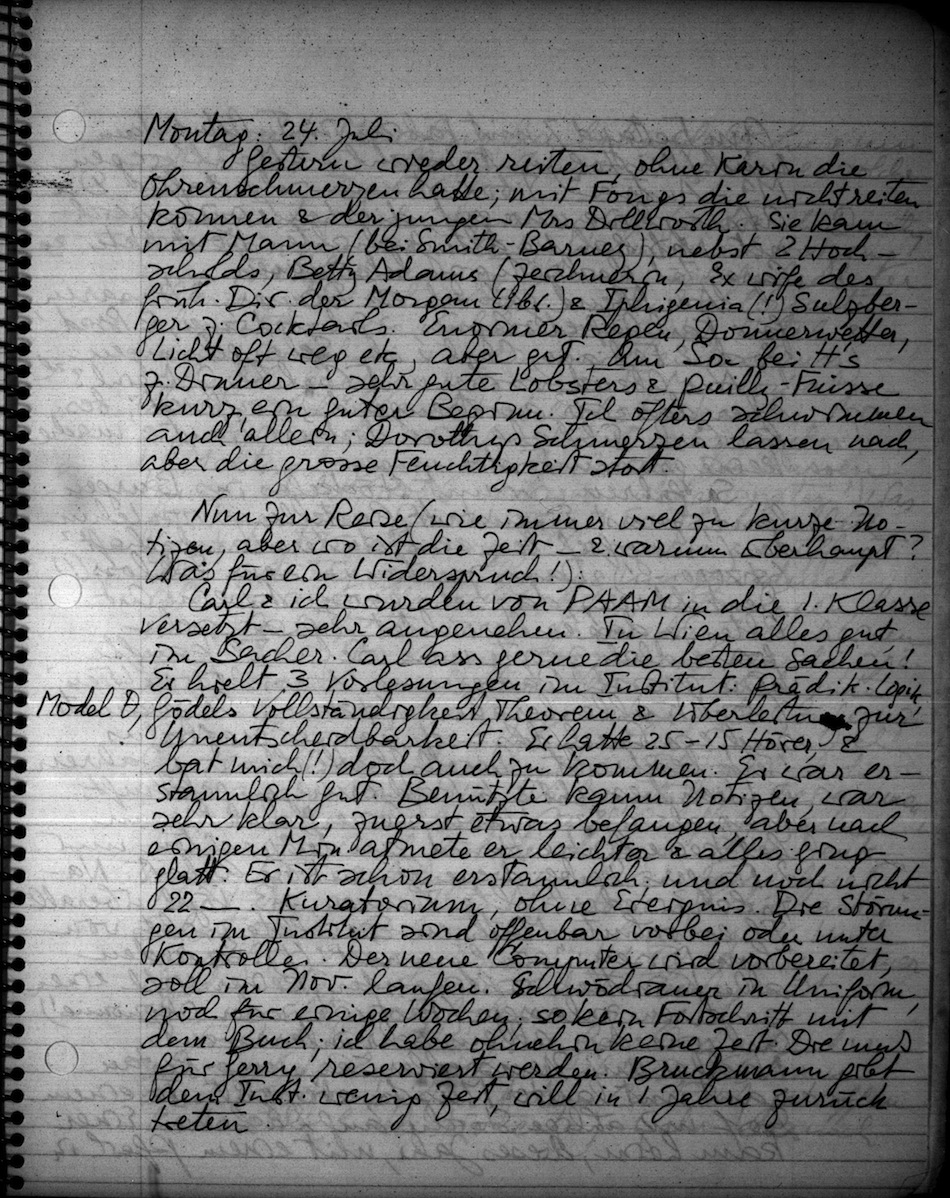 Montag. 24. Juli
Gestern wieder reiten, ohne Karin die
Ohrenschmerzen hatte; mit Fongs die nicht reiten
können & der jungen Mrs Dillworth. Sie kam
mit Mann (bei Smith-Barney), nebst 2 Hoch-
schilds, Betty Adams (Zeichnerin, Ex wife des
früh. Dir. der Morgan Libr.) & Iphigenia (!) Sulzber-
ger z. Cocktails. Enormer Regen, Donnerwetter,
Licht oft weg etc, aber gut. Am So bei H's
z. Dinner – sehr gute Lobsters & Puilly-Fuisse
kurz, ein guter Beginn. Ich öfters schwimmen
auch allein; Dorothys Schmerzen lassen nach,
aber die grosse Feuchtigkeit stört.
Nun zur Reise (wie immer viel zu kurze No-
tizen, aber wo ist die Zeit – & warum überhaupt?
Was für ein Widerspruch!):
Carl & ich wurden von PAAM in die 1. Klasse
versetzt – sehr angenehm. In Wien alles gut
im Sacher. Carl ass gerne die besten Sachen!
Er hielt 3 Vorlesungen im Institut: Prädik. Logik,
Model θ, Gödels Vollständigkeit Theorem & Überleitung zur
Unentscheidbarkeit. Er hatte 25–15 Hörer, &
bat mich (!) doch auch zu kommen. Er war er-
staunlich gut. Benützte kaum Notizen, war
sehr klar, zuerst etwas befangen, aber nach
einigen Min atmete er leichter & alles ging
glatt. Er ist schon erstaunlich, und noch nicht
22 –. Kuratorium, ohne Ereignis. Die Störun-
gen im Institut sind offenbar vorbei oder unter
Kontrolle. Der neue Computer wird vorbereitet,
soll im Nov. laufen. Schwödiauer in Uniform,
noch für einige Wochen; so kein Fortschritt mit
dem Buch; ich habe ohnehin keine Zeit. Die muss
für Jerry reserviert werden. Bruckmann gibt
dem Inst. wenig Zeit, will in 1 Jahre zurück
treten.